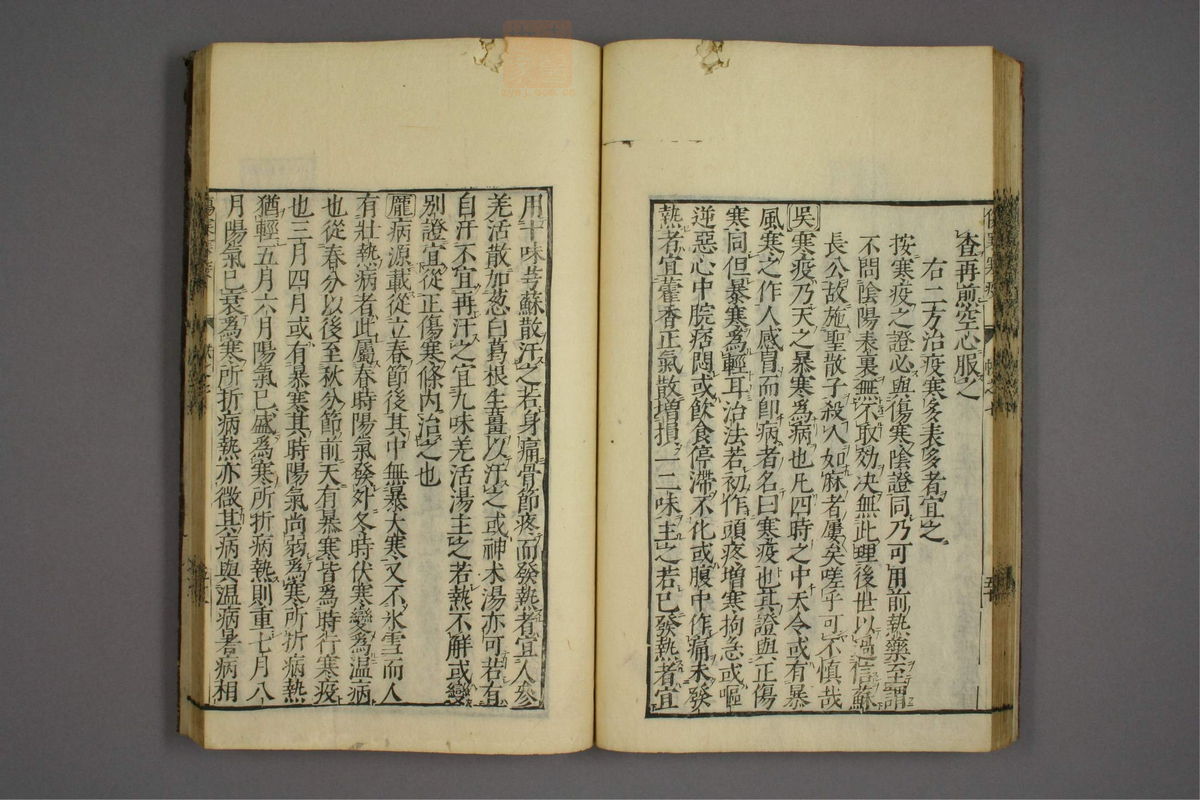 查再煎空心服之
右二方治疫寒多表多者宜之
按寒疫之證必與傷寒陰證同乃可用前熱藥至謂
不問陰陽表裏無不取効决無此理後世以過信蘇
長公故施聖散子殺人如麻者屢矣嗟乎可不慎哉
吳寒疫乃天之暴寒為病也凡四時之中天令或有暴
風寒之作人感冒而卽病者名曰寒疫也其證與正傷
寒同但暴寒為輕耳治法若初作頭疼增寒拘急或嘔
逆惡心中脘痞悶或飲食停滯不化或腹中作痛未發
熱者宜藿香正氣散增損一二味主之若已發熱者宜
用十味芎蘇散汗之若身痛骨節疼而發熱者宜人參
羗活散加葱白葛根生薑以汗之或神术湯亦可若有
自汗不宜再汗之宜九味羗活湯主之若熱不解或變
别證宜從正傷寒條内治之也
龐病源載從立春節後其中無暴大寒又不氷雪而人
有壯熱病者此屬春時陽氣發外冬時伏寒變為温病
也從春分以後至秋分節前天有暴寒皆為時行寒疫
也三月四月或有暴寒其時陽氣尚弱為寒所折病熱
猶輕五月六月陽氣已盛為寒所折病熱則重七月八
月陽氣已衰為寒所折病熱亦微其病與温病暑病相